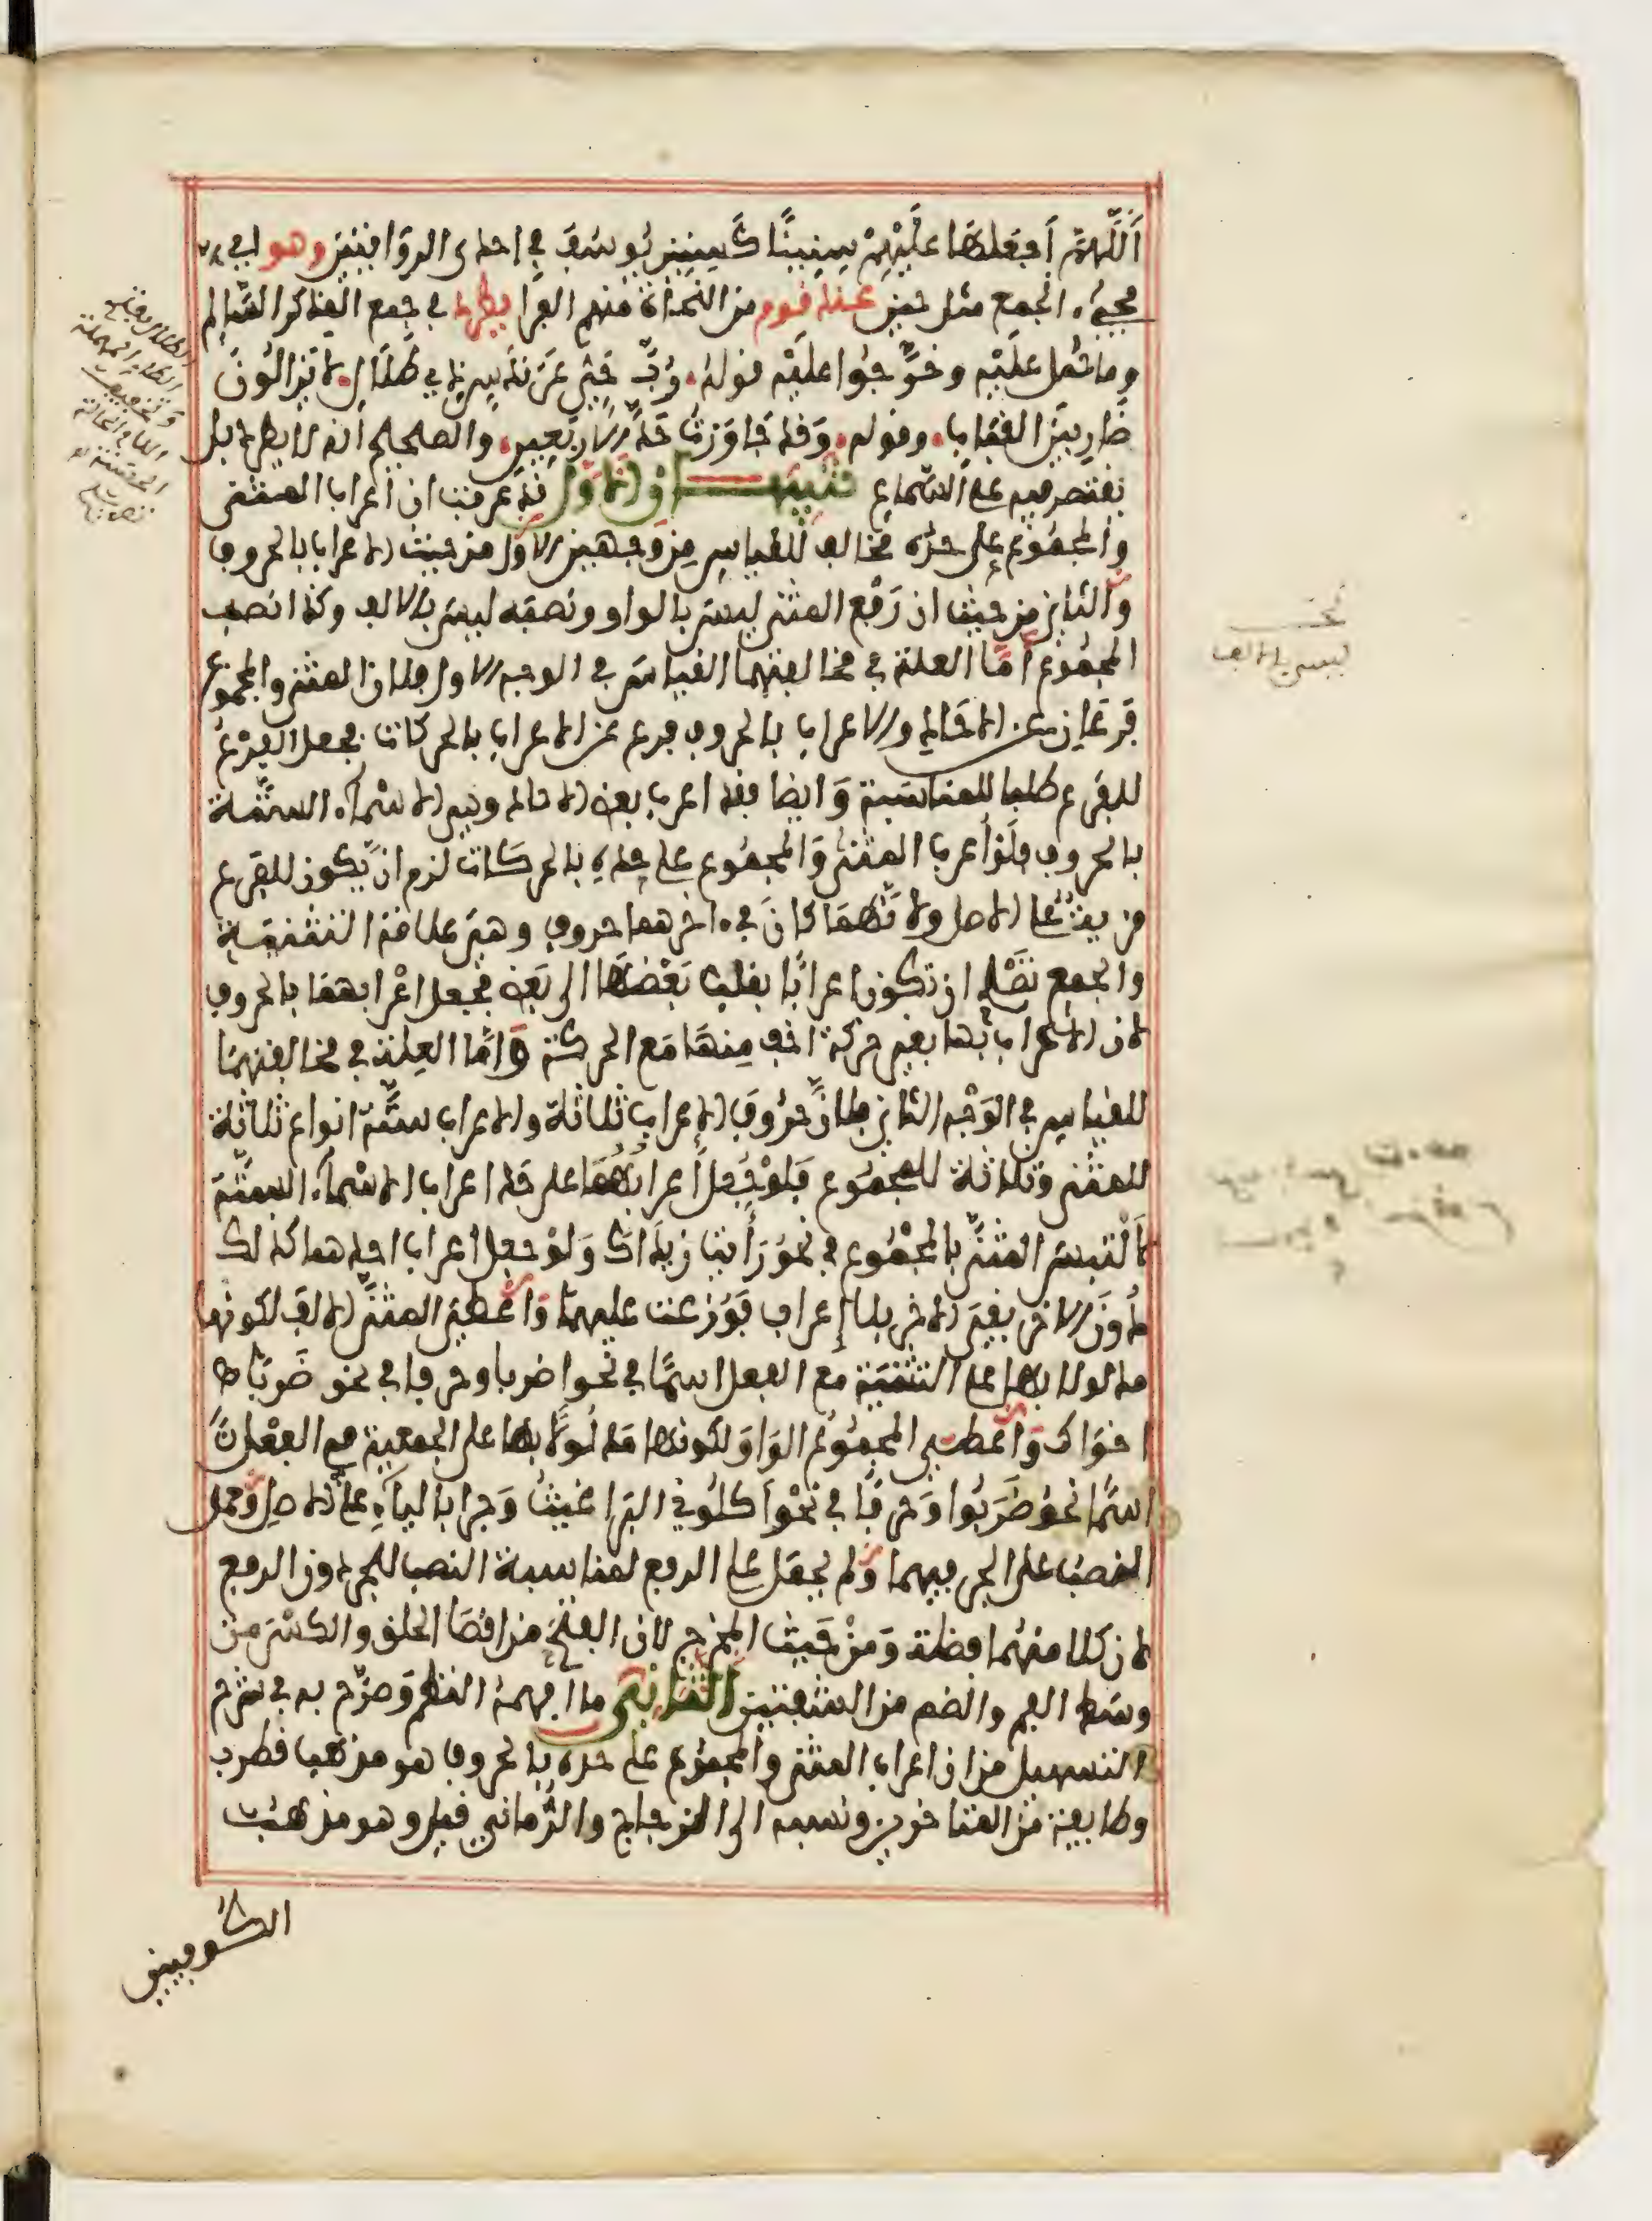 اَللَّهُمَّ اَجْعَلْهَا عَلَيْهِمْ سِنِينًا كَسِنِينِ يُوسُفَ في احدى الروايتين وهو اي
مجيء الجمع مثل حين عند قوم من النحاة منهم الفرا يطرد في جمع المذكر السالم
وما حمل عليه وخرّجوا عليه قوله. رُبَّ حَيٍّ عَرَنْدَسٍ ذِي طَلَالٍ. لا يَزَالُونَ
ضَارِبِينَ القِبَابِ. وقوله. وَقد جَاوَزْتُ حَدَّ الارْبَعِينِ. والصحيح انه لا يطرد بل
يقتصر فيه على السماع تنبيهان الاول قد عرفت ان اعراب المثنى
والمجموع على حده مخالف للقياس من وجهين الاول من حيث الاعراب بالحروف
والثاني من حيث ان رَفْع المثنى ليس بالواو ونصبه ليس بالالف وكذا نصب
المجموع أمّا العلة في مخالفتهما القياس في الوجه الاول فلان المثنى والمجموع
فرعان عن الاحاد والاعراب بالحروف فرع عن الاعراب بالحركات فجعل الفرع
للفرع طلبا للمناسبة وَايضا فقد اعرب بعض الاحاد وهي الاسماء الستة
بالحروف فلو أعرب المثنى وَالمجموع على حده بالحركات لزم ان يكون للفرع
مزية على الاصل ولانهما كانَ في اخرهما حروف وهي علامة التثنية
والجمع تصْلح ان تكون اعرابًا بقلب بَعْضها الى بعض فجعل اعْرابهما بالحروف
لان الاعراب بها بغير حركة اخف منها مَع الحركة وَامّا العلة في مخالفتهما
للقياس في الوَجْه الثاني فلان حُرُوف الاعراب ثلاثة والاعراب ستّة انواع ثلاثة
للمثنى وثلاثة للمجموع فلوْ جُعل أعرابهُما على حد اعراب الاسْماء الستّة
لَالتبس المثنى بالمجموع في نحوُ رَأيت زيدَاك وَلوْ جعل اعراب احدهما كذلك
دُونَ الاخر بقي الاخر بلا إعراب فَوُزعت عليهما وَاعْطي المثنّى الالف لكونها
مدلولا بها على التثنيَة مع الفعل اسمًا في نحو اضربا وحرفا في نحو ضَرَبَا
اخوَاك وَاعْطي المجمُوع الوَاو لكونها مَدلُولا بها على الجمعية مع الفعْل
اسمًا نحوُ ضَرَبُوا وَحرفًا في نحوَ اَكلُوني البراغيث وَجرا بالياء على الاصل وَحمل
النصب على الجر فيهما وَلم يحمَل على الرفع لمناسبة النصب للجر دون الرفع
لان كلا منهما فضلة وَمِنْ حَيث المخرج لان الفتح من اقصا الحلق والكسر من
وسط الفم والضم من الشفتين الثاني ما افهمهُ النظم وَصرّح به في شرح
التسهيل من ان اعراب المثنى والمجموع على حده بالحروف هو مذهب قطرب
وطايفة من المتاخرين ونسب الى الزجاج والزَّجاجي قيل وهو مذهب
الكوفيين
ليس بالالف